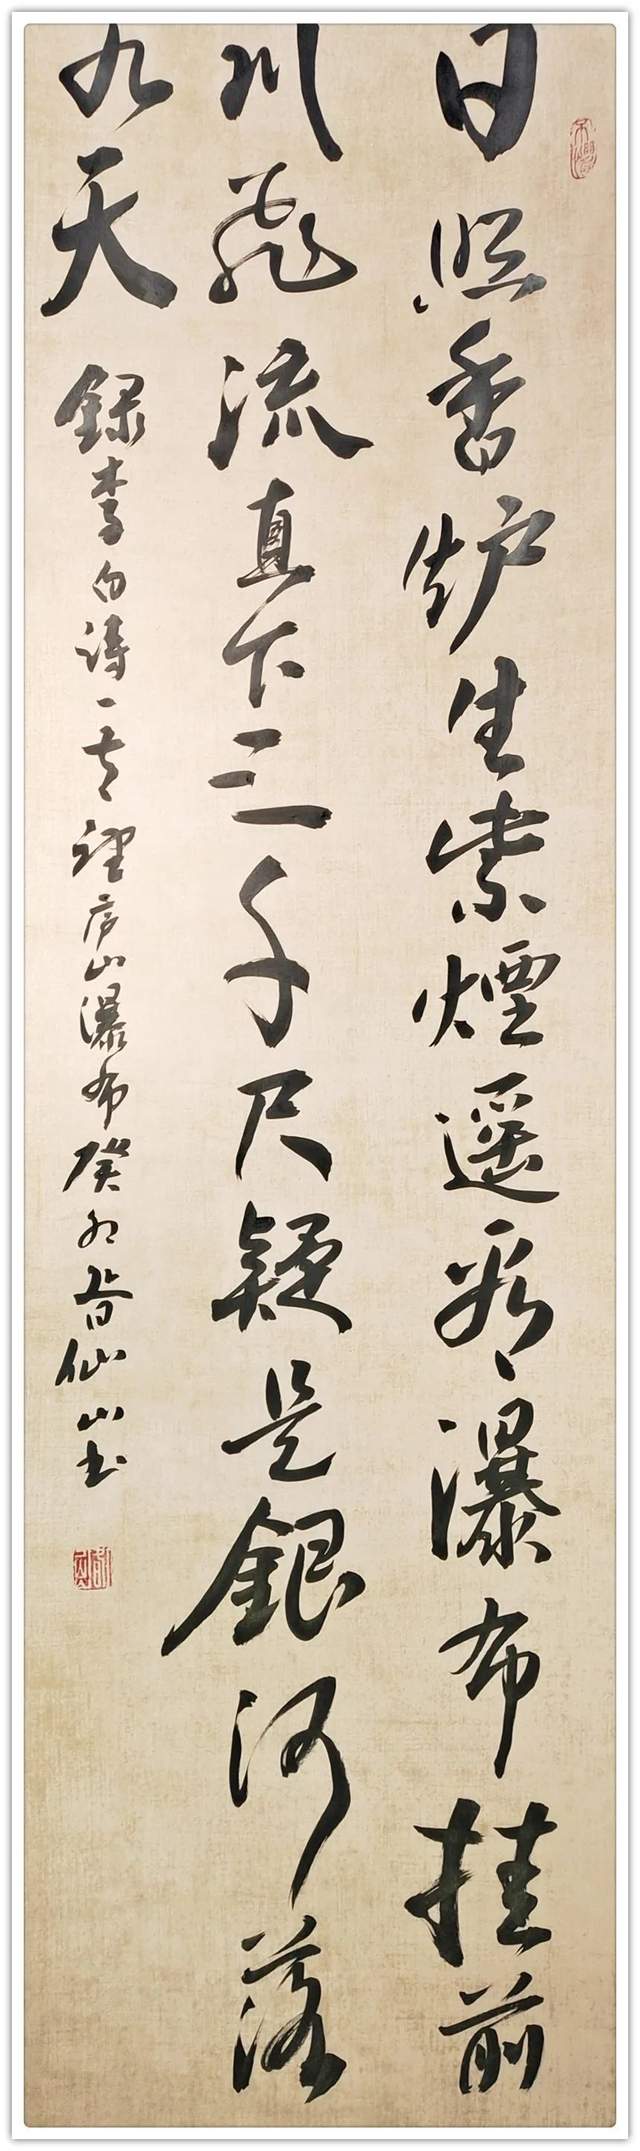 日照香炉生紫煙遥看瀑布挂前
川飛流直下三千尺疑是銀河落
九天
録李白诗一首望庐山瀑布癸卯春仙山书